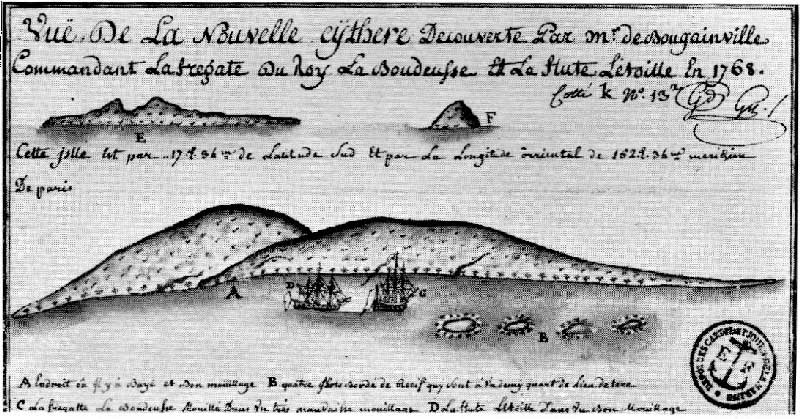 Vuë De La Nouvelle Cÿthere Decouverte Par mr. de Bougainville
Commandant La fregate Du Roy La Boudeusse Et La flute L'etoille En 1768.
Cotté k No. 13
E
F
Cette jslle Est par 17d. 36m de Latitude Sud Et par La Longitude orientel de 152d. 36m meridien
De paris
A
D
C
B
A Lendroit où il y à Baye et Bon mouillage B quatre de recif qui sont à un demy quart de Lieu de terre
C La fregatte La Boudeusse Mouillé Dans un très mauvaise mouillage D La flute L'etoille Dans un Bon Mouillage